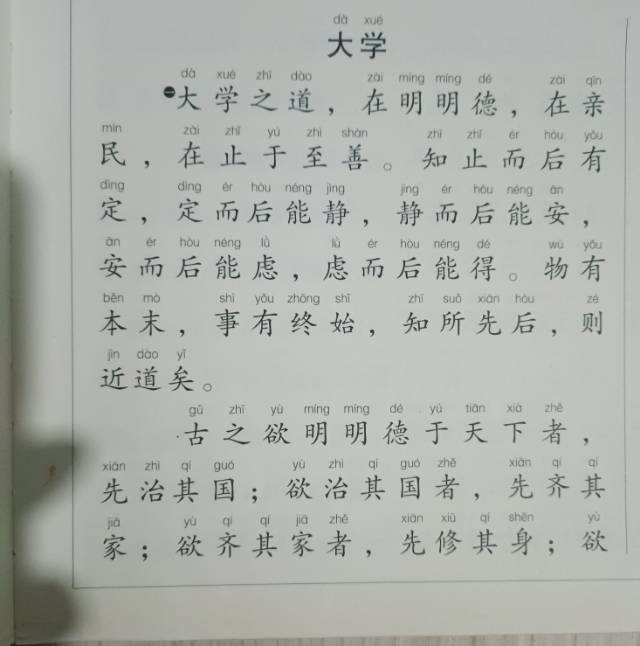 dà xué
大学
dà xué zhī dào zài míng míng dé zài qīn
大学之道，在明明德，在亲
mín zài zhǐ yú zhì shàn zhī zhǐ ér hòu yǒu
民，在止于至善。知止而后有
dìng dìng ér hòu néng jìng jìng ér hòu néng ān
定，定而后能静，静而后能安，
ān ér hòu néng lǜ lǜ ér hòu néng dé wù yǒu
安而后能虑，虑而后能得。物有
běn mò shì yǒu zhōng shǐ zhī suǒ xiān hòu zé
本末，事有终始，知所先后，则
jìn dào yǐ
近道矣。
gǔ zhī yù míng míng dé yú tiān xià zhě
古之欲明明德于天下者，
xiān zhì qí guó yù zhì qí guó zhě xiān qí qí
先治其国；欲治其国者，先齐其
jiā yù qí qí jiā zhě xiān xiū qí shēn yù
家；欲齐其家者，先修其身；欲